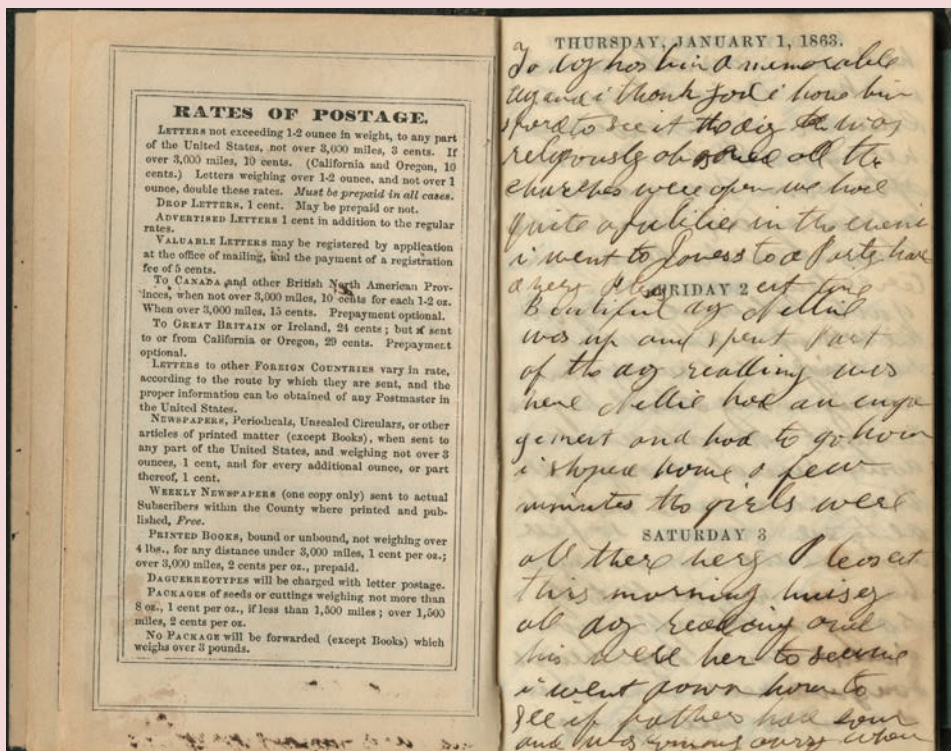 RATES OF POSTAGE.
LETTERS not exceeding 1-2 ounce in weight, to any part
of the United States, not over 3,000 miles, 3 cents. If
over 3,000 miles, 10 cents. (California and Oregon, 10
cents.) Letters weighing over 1-2 ounce, and not over 1
ounce, double these rates. Must be prepaid in all cases.
DROP LETTERS, 1 cent. May be prepaid or not.
ADVERTISED LETTERS 1 cent in addition to the regular
rates.
VALUABLE LETTERS may be registered by application
at the office of mailing, and the payment of a registration
fee of 5 cents.
TO CANADA and other British North American Prov-
inces, when not over 3,000 miles, 10 cents for each 1-2 oz.
When over 3,000 miles, 15 cents. Prepayment optional.
TO GREAT BRITAIN or Ireland, 24 cents; but if sent
to or from California or Oregon, 29 cents. Prepayment
optional.
LETTERS to other FOREIGN COUNTRIES vary in rate,
according to the route by which they are sent, and the
proper information can be obtained of any Postmaster in
the United States.
NEWSPAPERS, Periodicals, Unsealed Circulars, or other
articles of printed matter (except Books), when sent to
any part of the United States, and weighing not over 3
ounces, 1 cent, and for every additional ounce, or part
thereof, 1 cent.
WEEKLY NEWSPAPERS (one copy only) sent to actual
Subscribers within the County where printed and pub-
lished, Free.
PRINTED BOOKS, bound or unbound, not weighing over
4 lbs., for any distance under 3,000 miles, 1 cent per oz.;
over 3,000 miles, 2 cents per oz., prepaid.
DAGUERREOTYPES will be charged with letter postage.
PACKAGES of seeds or cuttings weighing not more than
8 oz., 1 cent per oz., if less than 1,500 miles; over 1,500
miles, 2 cents per oz.
NO PACKAGE will be forwarded (except Books) which
weighs over 3 pounds.
THURSDAY, JANUARY 1, 1863.
To day has bin a memorable
day and i thank god i have bin
spard to see it the day was
religously observed all the
churches were open we had
quite a in the
i went to to a Party had
a very est time
FRIDAY 2
Beautiful day Nellie
was up and spent Part
of the day reading was
here Nellie had an enga
gement and had to go
i stoped home a few
minutes the girls were
SATURDAY 3
all there very Pleasent
this morning
all day reading and
were her to
i went down home to
see if father had
and was when